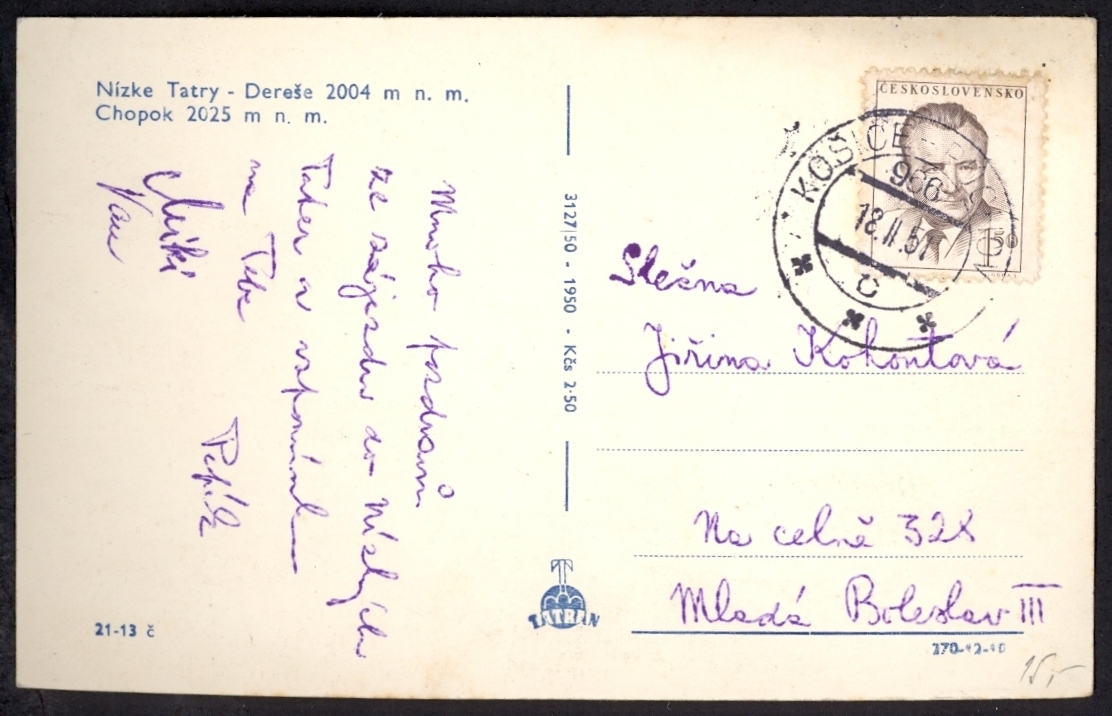 Nízke Tatry - Dereše 2004 m n. m.
Chopok 2025 m n. m.
Mnoho pozdravů
ze zájezdu do Nízkých
Tater a vzpomínek
na Tebe
Pepík
Miki
3127/50 - 1950 - Kčs 2·50
TATRAN
21-13 č
ČESKOSLOVENSKO
1 50
KOŠICE
966
18.II.51
c
Slečna
Jiřina Kohoutová
Na celně 328
Mladá Boleslav III
270-12-10
15,-